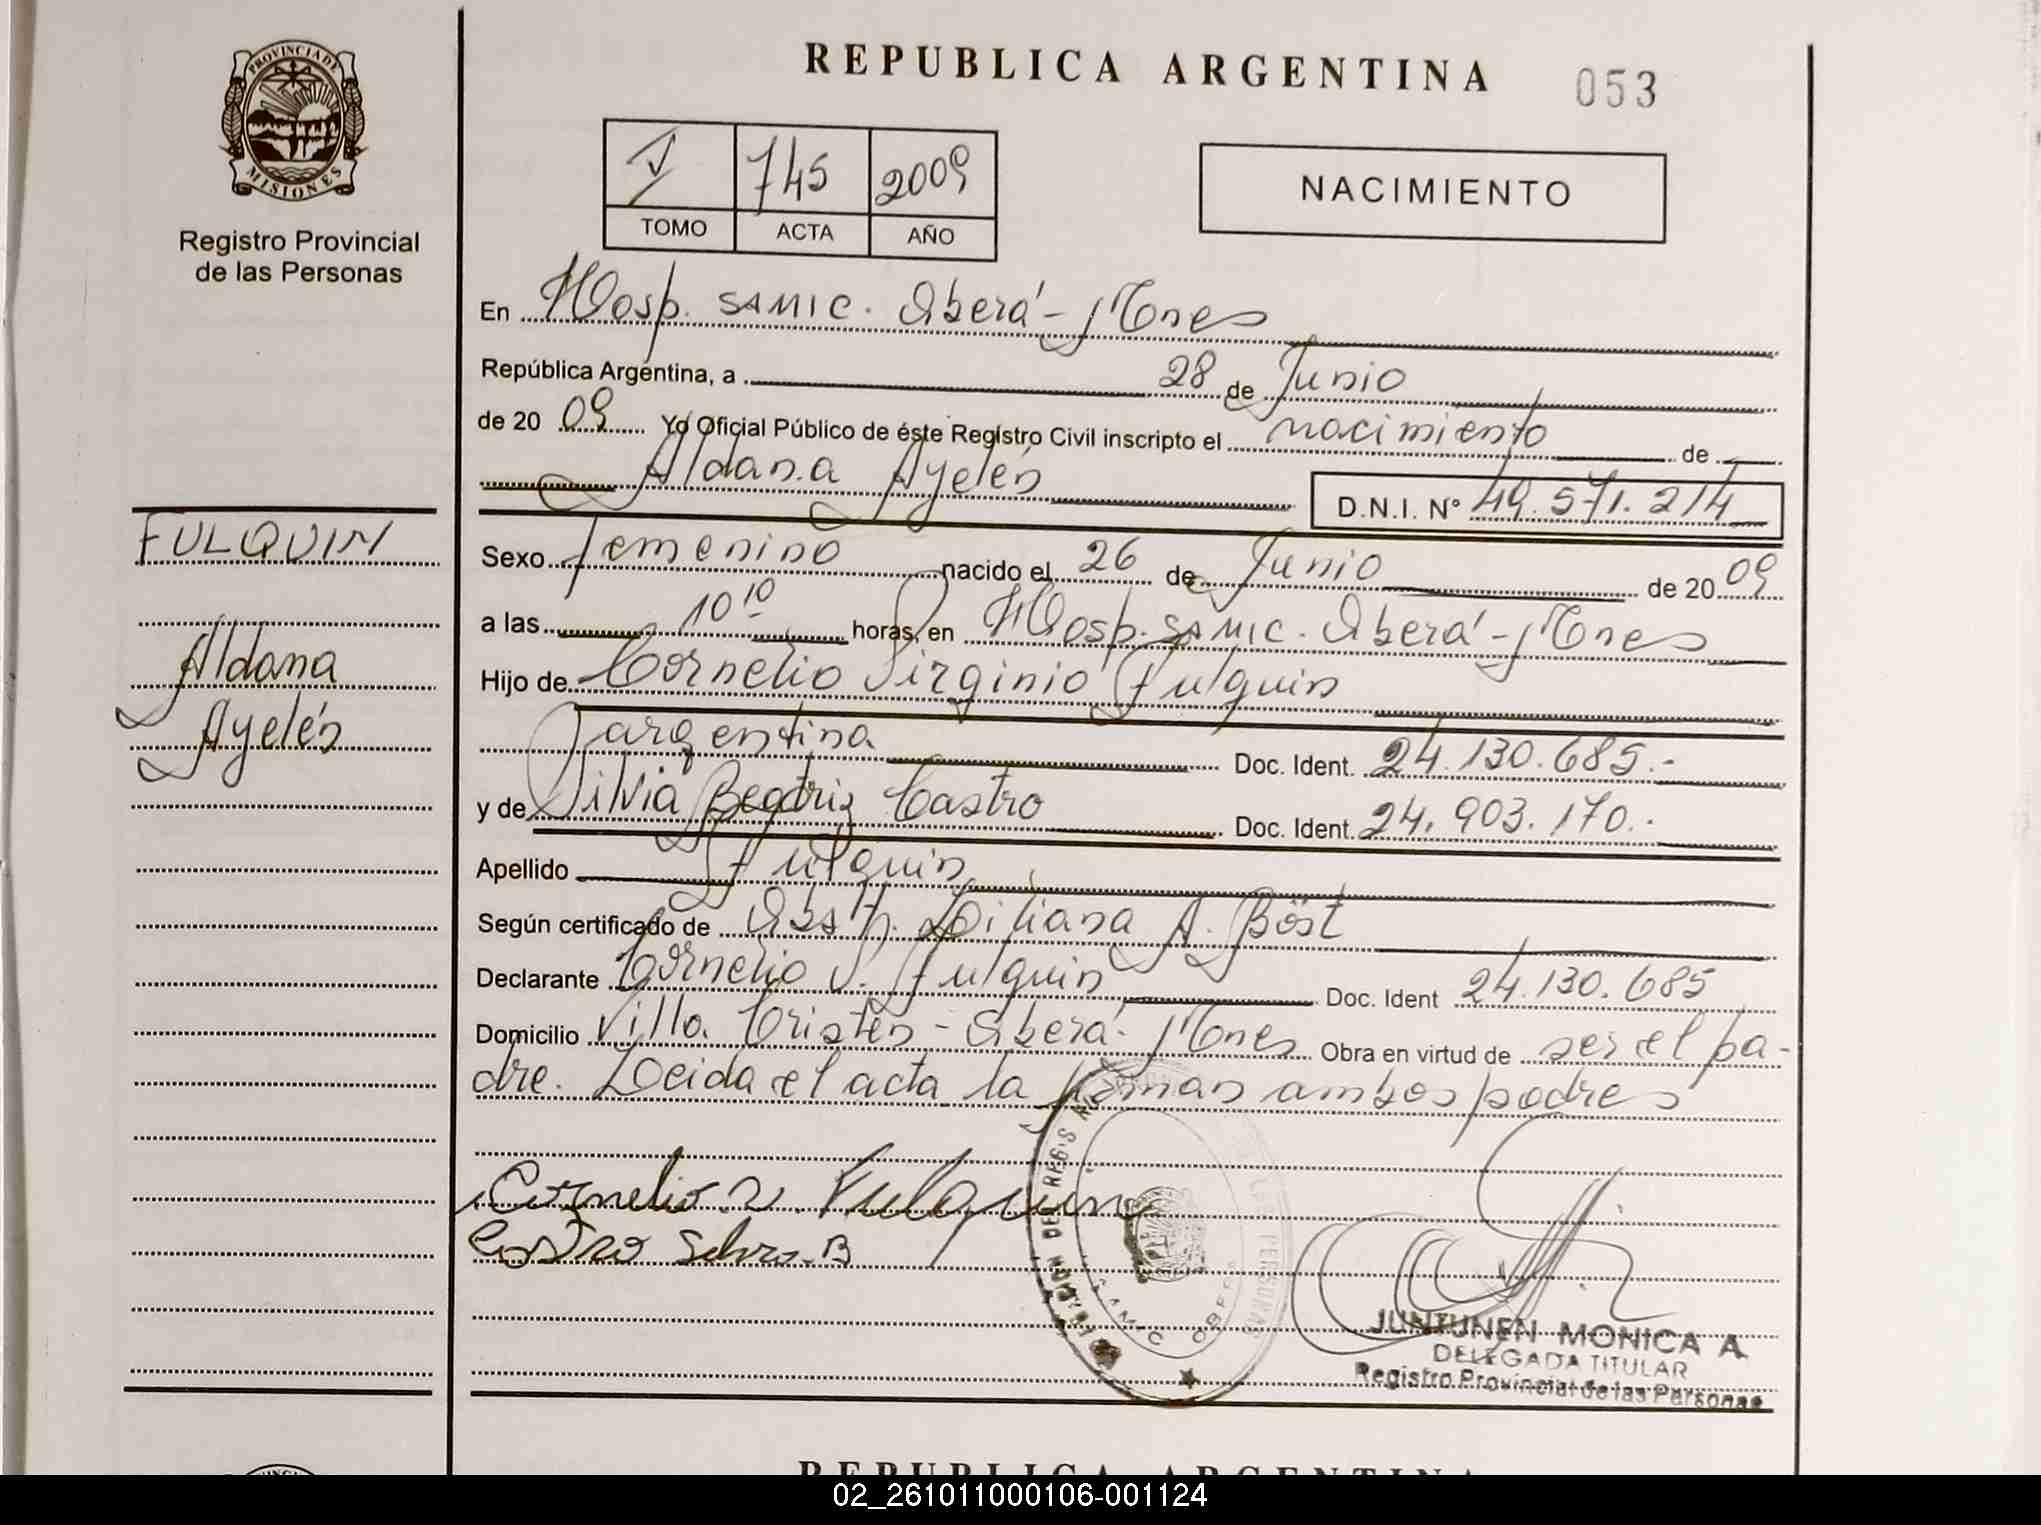 REPUBLICA ARGENTINA
053
PROVINCIA DE MISIONES
Registro Provincial
de las Personas
I 745 2009
TOMO ACTA AÑO
NACIMIENTO
En Hosp. SAMIC. Oberá - Mnes
República Argentina, a 28 de Junio
de 20 09 Yo Oficial Público de éste Registro Civil inscripto el nacimiento de
Aldana Ayelén D.N.I. Nº 49.571.214
FULQUIN
Aldana
Ayelén
Sexo femenino nacido el 26 de Junio de 20 09
a las 10 10 horas, en Hosp. SAMIC. Oberá - Mnes
Hijo de Cornelio Virginio Fulquin
argentina Doc. Ident. 24.130.685.-
y de Silvia Beatriz Castro Doc. Ident. 24.903.170.-
Apellido Fulquin
Según certificado de Obst. Liliana A. Böst
Declarante Cornelio V. Fulquin Doc. Ident 24.130.685
Domicilio Villa Cristen - Oberá - Mnes Obra en virtud de ser el pa-
dre. Leida el acta la firman ambos padres
Cornelio V. Fulquin
Castro Silvia B
JUNTUNEN MONICA A
DELEGADA TITULAR
Registro Provincial de las Personas
REPUBLICA ARGENTINA
02_261011000106-001124